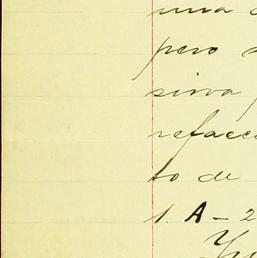 una
pero
sirva
refacc
to de
1. A - 2